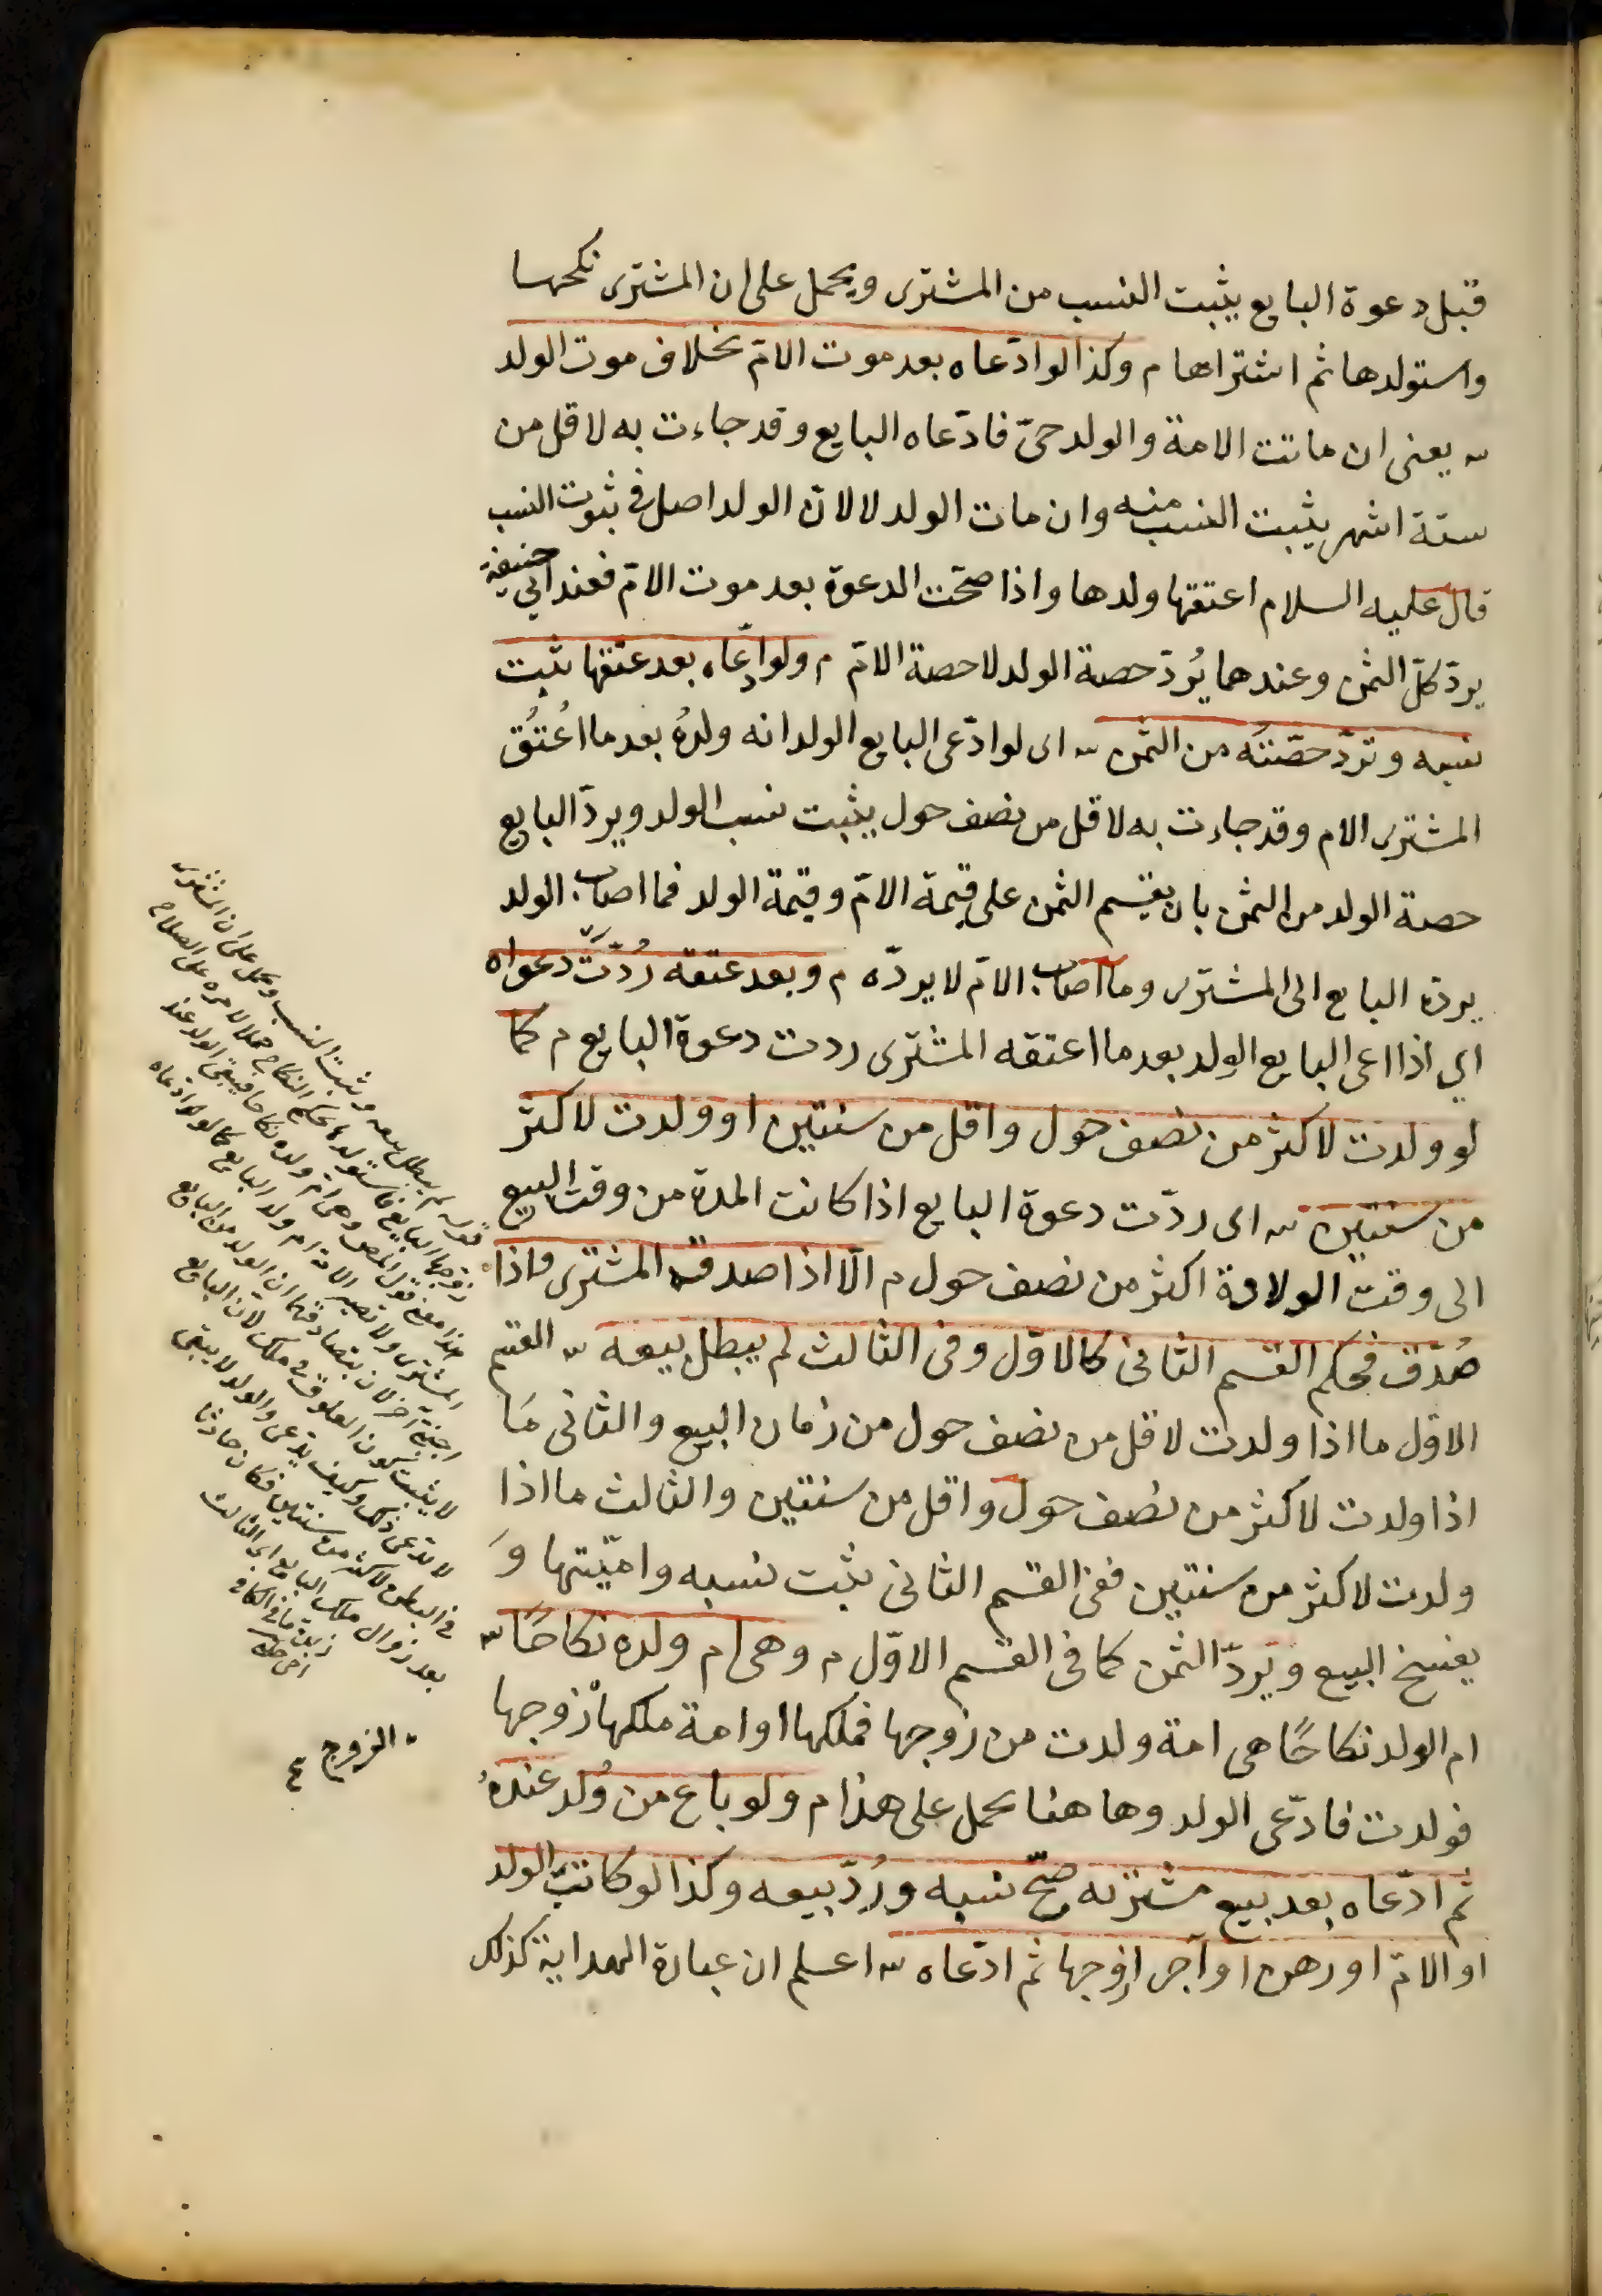 قبل دعوة البايع يثبت النسب من المشترى ويحمل على ان المشترى نكحها
واستولدها ثم اشتراها م وكذا لو ادّعاه بعد موت الامّ بخلاف موت الولد
ش يعنى ان ماتت الامة والولد حىّ فادّعاه البايع وقد جاءت به لاقل من
ستة اشهر يثبت النسب منه وان مات الولد لا لانّ الولد اصل فى ثبوت النسب
قال عليه السلام اعتقها ولدها واذا صحّت الدعوة بعد موت الامّ فعند ابي حنيفة
يردّ كلّ الثمن وعندهما يُردّ حصة الولد لا حصة الامّ م ولو ادّعاه بعد عتقها يثبت
نسبه وتردّ حصّته من الثمن ش اى لو ادّعى البايع الولد انه ولدهُ بعد ما اعُتق
المشترى الام وقد جاءت به لاقل من نصف حول يثبت نسب الولد ويردّ البايع
حصة الولد من الثمن بان يقسم الثمن على قيمة الامّ وقيمة الولد فما اصاب الولد
يردّه البايع الى المشترى وما اصاب الامّ لا يردّه م وبعد عتقه رُدّت دعواه
اي اذا اعى البايع الولد بعد ما اعتقه المشترى ردت دعوة البايع م كما
لو ولدت لاكثر من نصف حول واقل من سنتين او ولدت لاكثر
من سنتين ش اى ردّت دعوة البايع اذا كانت المدة من وقت البيع
الى وقت الولادة اكثر من نصف حول م الّا اذا صدقه المشترى فاذا
صُدّق فحكم القسم الثانى كالاوّل وفى الثالث لم يبطل بيعه ش القسم
الاول ما اذا ولدت لاقل من نصف حول من زمان البيع والثانى مَا
اذا ولدت لاكثر من نصف حول واقل من سنتين والثالث ما اذا
ولدت لاكثر من سنتين ففى القسم الثانى يثبت نسبه واميّتها وَ
يفسخ البيع ويردّ الثمن كما فى القسم الاوّل م وهى ام ولده نكاحًا ش
ام الولد نكاحًا هى امة ولدت من زوجها فملكها او امة ملكها زوجها
فولدت فادّعى الولد وها هنا يحمل على هذا م ولو باع من وُلد عندهُ
ثم ادّعاه بعد بيع مشتريه صحّ نسبه ورُدّ بيعه وكذا لو كاتب الولد
او الامّ او رهن او آجر او زوجها ثم ادّعاه ش اعلم ان عبارة الهداية كذلك
قوله لم يبطل بيعه وثبت النسب وحمل على ان المشترى
زوجها البايع فاستولدها بحكم النكاح حملا لامره على الصلاح
لا يثبت كون العلوق فى ملك لانّ البايع
لا يدّعى ذلك وكيف يدّعى والولد لا يبقى
فى البطن لاكثر من سنتين فكان حادثا
بعد زوال ملك البايع
الزوج